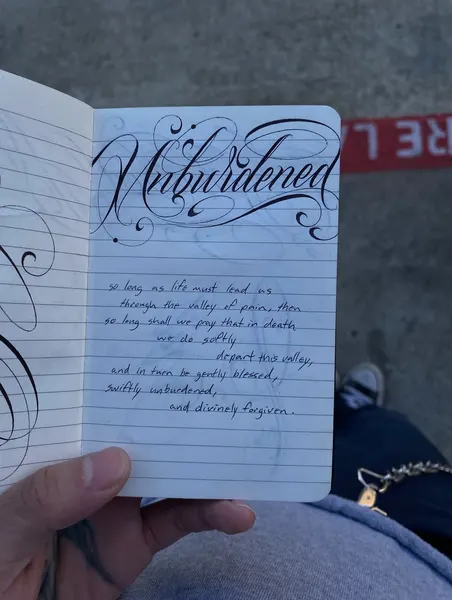 Unburdened
so long as life must lead us
through the valley of pain, then
so long shall we pray that in death
we do softly
depart this valley,
and in turn be gently blessed,
swiftly unburdened,
and divinely forgiven.
RE LA